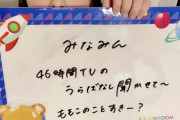 みなみん
46時間TVの
うらばなし聞かせて〜
ももこのことすきー?